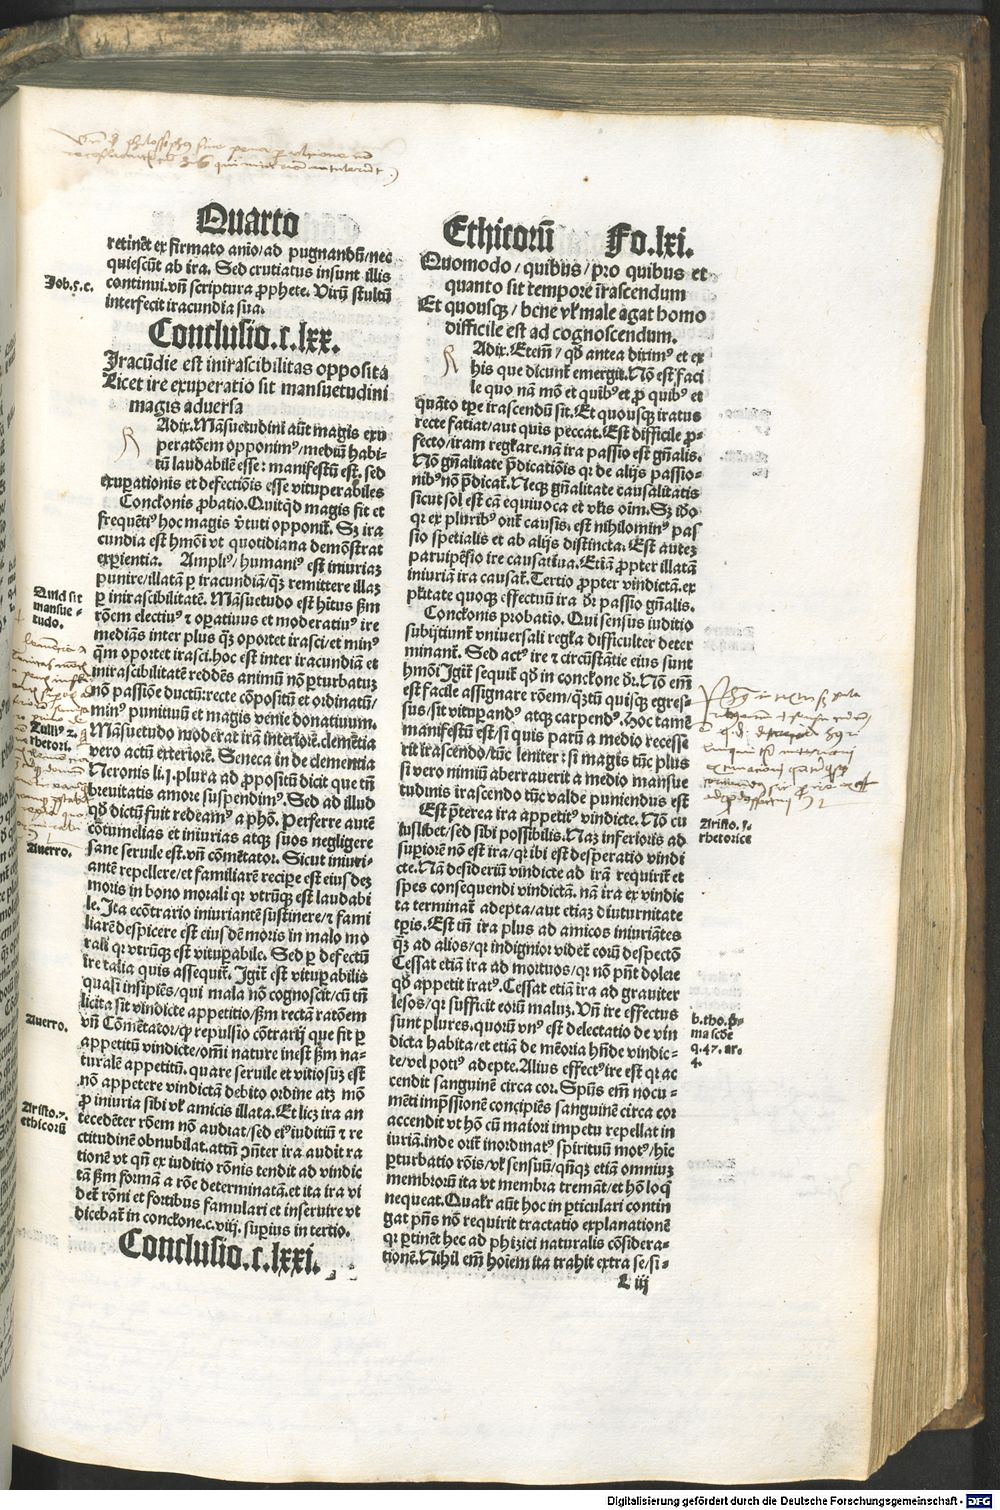 Quarto
retinēt ex firmato anio/ad pugnandū/nec
quiescūt ab ira. Sed crutiatus insunt illis
continui.vñ scriptura ꝓphete. Virū stultū
interfecit iracundia sua.
Job.5.c.
Conclusio.c.lxx.
Iracūdie est inirascibilitas opposita
Licet ire exuperatio sit mansuetudini
magis aduersa
Adix. Māsuetudini aūt magis exu
peratōem opponimꝰ/mediū habi-
tū laudabilē esse: manifestū est. sed
exuꝑationis et defectiōis esse vituperabiles
Concklonis ꝓbatio. Quitqd magis fit et
frequētiꝰ hoc magis v̓tuti opponit̄. Sꝫ ira
cundia est hmōi vt quotidiana demōstrat
exꝑientia. Ampliꝰ/humaniꝰ est iniuriaꝫ
punire/illatam ꝑ iracundiā/qꝫ remittere illaꝫ
ꝑ inirascibilitatē. Māsuetudo est hītus ẜm
rōem electiuꝰ ⁊ oꝑatiuus et moderatiuꝰ ire
mediās inter plus qꝫ oportet irasci/et minꝰ
qm̄ oportet irasci.hoc est inter iracundiā et
inirascibilitatē reddēs animū nō ꝑturbatuꝫ
nō passiōe ductū:recte cōpositū et ordinatū/
minꝰ punitiuū et magis venie donatiuum.
Māsuetudo moderat irā interiorē.clemētia
vero actū exteriorē. Seneca in de clementia
Neronis li.j.plura ad ꝓpositū dicit que tn̄
breuitatis amore suspendimꝰ. Sed ad illud
qd̄ dictū fuit redeamꝰ a phō. Perferre autē
cōtumelias et iniurias atqꝫ suos negligere
sane seruile est.vñ cōmētator. Sicut iniuri-
antē repellere/et familiarē recipe est eius deꝫ
moris in bono morali qr vtrūqꝫ est laudabi
le. Ita ecōtrario iniuriantē sustinere/⁊ fami
liarē despicere est eius dē moris in malo mo
rali qr vtrūqꝫ est vituꝑabile. Sed ꝑ defectū
ire talia quis assequit̄. Igit̄ est vituꝑabilis
quasi insipiēs/qui mala nō cognoscit/cū tn̄
licita sit vindicte appetitio/ẜm rectā ratōem
vñ Cōmētator/ꝙ repulsio cōtrarij que fit ꝑ
appetitū vindicte/omī nature inest ẜm na-
turalē appetitū. quare seruile et vitiosuꝫ est
nō appetere vindictā debito ordine atꝫ mō
ꝓ iniuria sibi vl̓ amicis illata. Et licꝫ ira an
tecedēter rōem nō audiat/sed eiꝰ iuditiū ⁊ re
ctitudinē obnubilat.attn̄ ꝯn̄ter ira audit ra
tionē vt qn̄ ex iuditio rōnis tendit ad vindic
tā ẜm formā a rōe determinatā.et ita ira vi
det̄ rōni et fortibus famulari et inseruire vt
dicebat̄ in concklone.c.viij. suꝑius in tertio.
Conclusio.c.lxxi.
Quid sit
mansue-
tudo.
Tulliꝰ 2.
rhetori.
Auerro.
Auerro.
Aristo.7.
ethicorū
Ethicorū Fo.lxi.
Quomodo/quibus/pro quibus et
quanto sit tempore irascendum
Et quousqꝫ/bene vl̓ male agat homo
difficile est ad cognoscendum.
Adix. Etem̄/qd̄ antea diximꝰ et ex
his que dicunt̄ emergit. Nō est faci
le quo nā mō et quibꝰ et ꝓ quibꝰ et
quāto tꝑe irascendū sit. Et quousqꝫ iratus
recte fatiat/aut quis peccat. Est difficile ꝓ-
fecto/iram reglare.nā ira passio est gn̄alis.
Nō gn̄alitate p̄dicatiōis qr de alijs passio-
nibꝰ nō p̄dicat̄. Neqꝫ gn̄alitate causalitatis
sicut sol est cā equiuoca et vl̓is oīm. Sꝫ iō
qr ex pluribꝰ orit̄ causis. est nihilominꝰ pas
sio spetialis et ab alijs distincta. Est auteꝫ
paruipēsio ire causatiua. Etiā ꝓpter illatā
iniuriā ira causat̄. Tertio ꝓpter vindictā.ex
pte quoqꝫ effectuū ira dr̄ passio gn̄alis.
Concklonis probatio. Qui sensus iuditio
subijtiunt̄ vniuersali regl̓a difficulter deter
minant̄. Sed actꝰ ire ⁊ circūstātie eius sunt
hmōi Igit̄ sequit̄ qd̄ in concklone dr̄. Nō em̄
est facile assignare rōem/qꝫtū quisqꝫ egres-
sus/sit vituꝑandꝰ atqꝫ carpendꝰ. Hoc tamē
manifestū est/si quis parū a medio recesse
rit irascendo/tūc leniter: si magis tūc plus
si vero nimiū aberrauerit a medio mansue
tudinis irascendo tūc valde puniendus est
Est p̄terea ira appetitꝰ vindicte. Nō cu
iuslibet/sed sibi possibilis. Naꝫ inferioris ad
suꝑiorē nō est ira/qr ibi est desꝑatio vindi
cte. Nā desideriū vindicte ad irā requirit̄ et
spes consequendi vindictā. nā ira ex vindic
ta terminat̄ adepta/aut etiaꝫ diuturnitate
tꝑis. Est tn̄ ira plus ad amicos iniuriātes
qꝫ ad alios/qr indignior videt̄ eorū despectō
Cessat etiā ira ad mortuos/qr nō pn̄t dolere
qd̄ appetit iratꝰ. Cessat etiā ira ad grauiter
lesos/qr sufficit eorū maluꝫ. Vñ ire effectus
sunt plures. quorū vnꝰ est delectatio de vin
dicta habita/et etiā de mēoria hn̄de vindic-
te/vel potiꝰ adepte. Alius effectꝰ ire est qr ac
cendit sanguinē circa cor. Spūs em̄ nocu-
mēti imp̄ssionē concipiēs sanguinē circa cor
accendit vt hō cū maiori impetu repellat in
iuriā.inde orit̄ inordinatꝰ spirituū motꝰ/hīc
ꝑturbatio rōis/vl̓ sensuū/qn̄qꝫ etiā omniuꝫ
membrorū ita vt membra tremāt/et hō loqͥ
nequeat. Qualr̄ aūt hoc in ꝑticulari contin
gat pn̄s nō requirit tractatio explanationē
qr ꝑtinēt hec ad phizici naturalis cōsidera-
tionē. Nihil em̄ hoīem ita trahit extra se/si-
L iij
Aristo.j.
rhetorice
b.tho.p̄-
ma scdē
q.47.ar.
4.
Digitalisierung gefördert durch die Deutsche Forschungsgemeinschaft - DFG